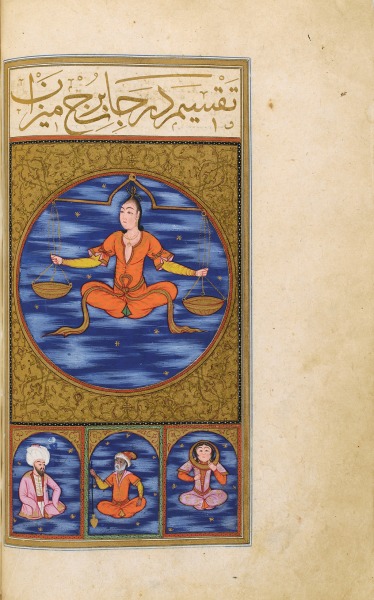 تقسيم درجات برج ميزان